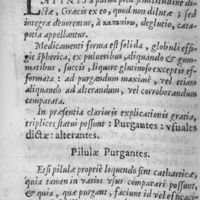 cta, Græcis ex eo, quod non dilutæ; sed
integræ deuorentur, à καταπίνω, deglutio, catapotia appellantur.
Medicamenti forma est solida, globuli effigie sphærica, ex pulueribus, aliquando & gummatibus, succis, liquore glutinoso exceptis efformata: ad purgandum maximè, vel etiam
aliquando ad alterandum, vel corroborandum
comparata.
In præsentia clarioris explicationis gratia,
triplices statui possunt: Purgantes: vsuales
dictæ: alterantes.
Pilulæ Purgantes.
Etsi pilulæ propriè loquendo sint catharticæ,
quia tamen in varios vsus comparari possunt,
& quia, quæ purgant, faciunt id vel efficacius